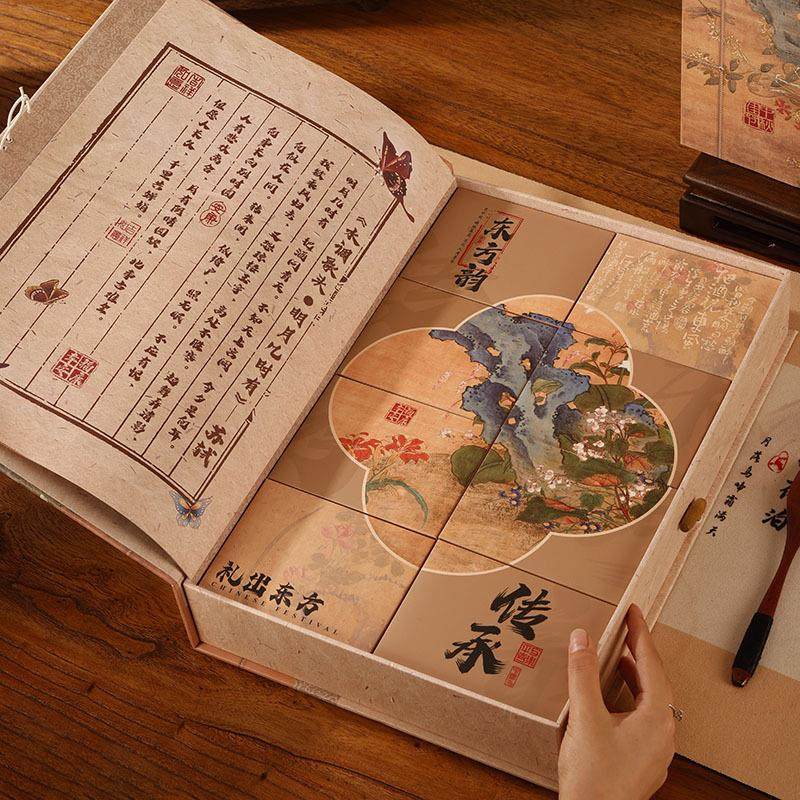 《水调歌头•明月几时有》 苏轼
明月几时有，把酒问青天。不知天上宫阙，今夕是何年。
我欲乘风归去，又恐琼楼玉宇，高处不胜寒。起舞弄清影，
何似在人间。转朱阁，低绮户，照无眠。不应有恨，
何事长向别时圆
人有悲欢离合，月有阴晴圆缺，此事古难全。
但愿人长久，千里共婵娟。
东方韵
礼出东方
CHINESE FESTIVAL
传承
泊
月落乌啼霜满天